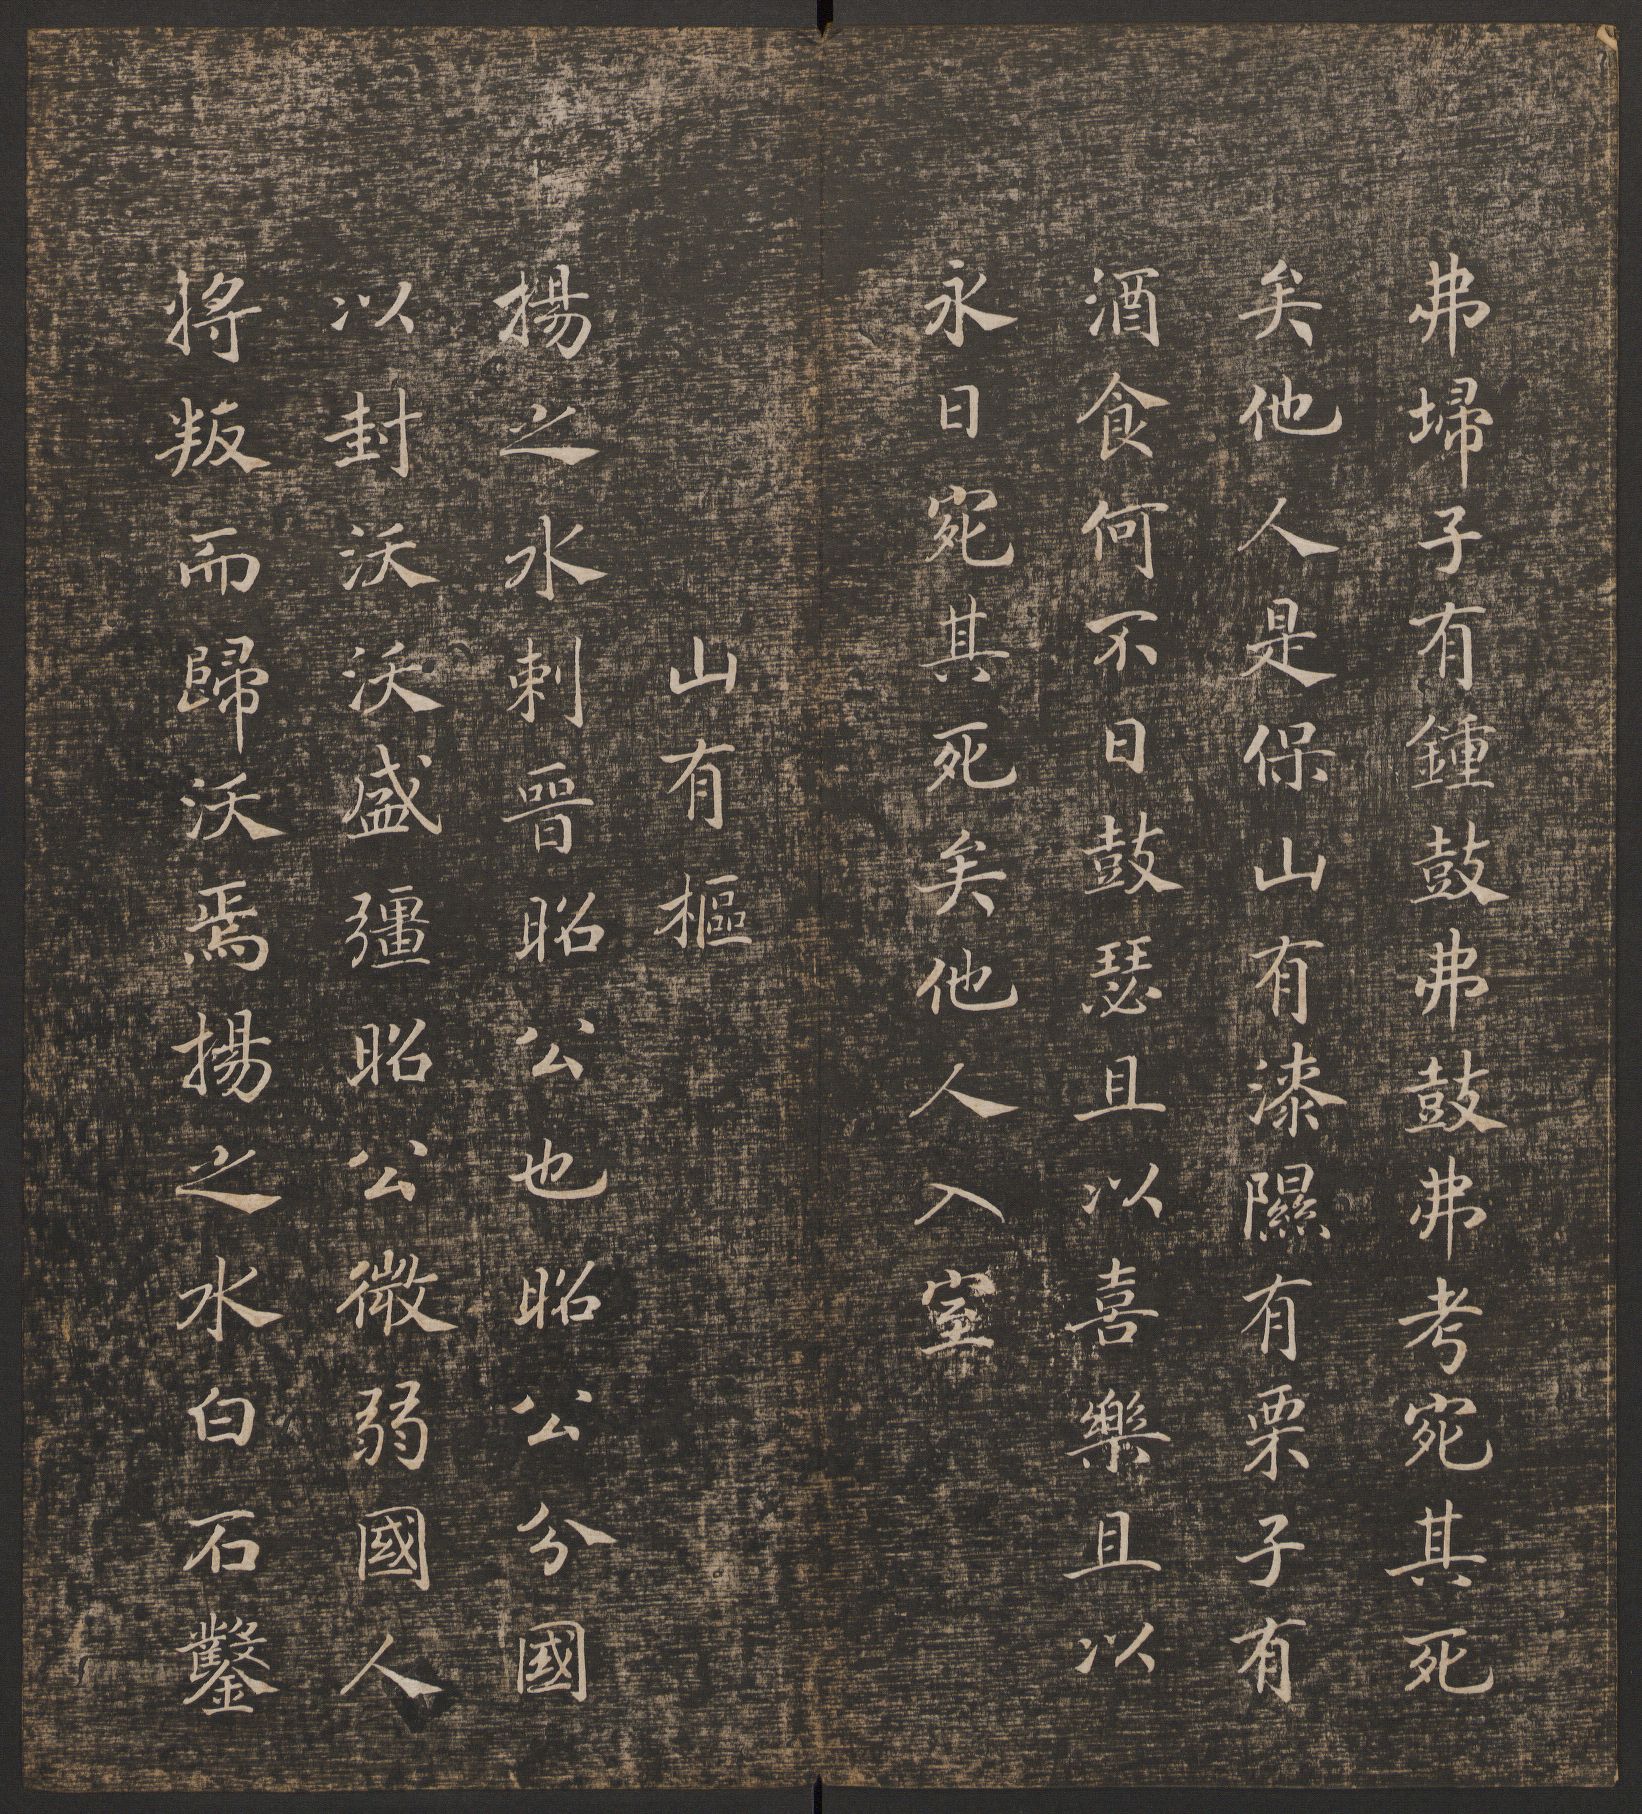 弗埽子有鍾鼓弗鼓弗考宛其死
矣他人是保山有漆隰有栗子有
酒食何不日鼓瑟且以喜樂且以
永日宛其死矣他人入室
山有樞
揚之水刺晉昭公也昭公分國
以封沃沃盛彊昭公微弱國人
將叛而歸沃焉揚之水白石鑿